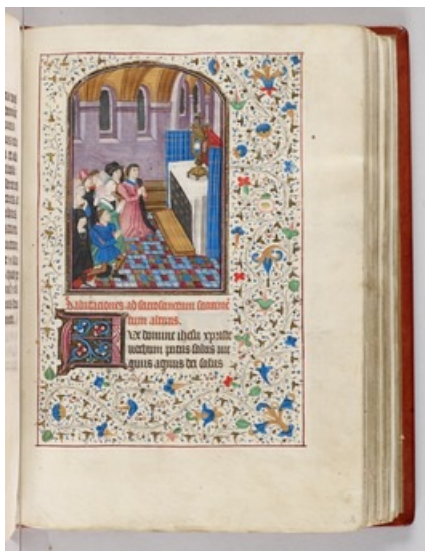 Salutaciones ad sacrosanctum sacramen
tum altaris.
AVe domine ihesu xpriste
verbum patris filius vir
ginis agnus dei salus